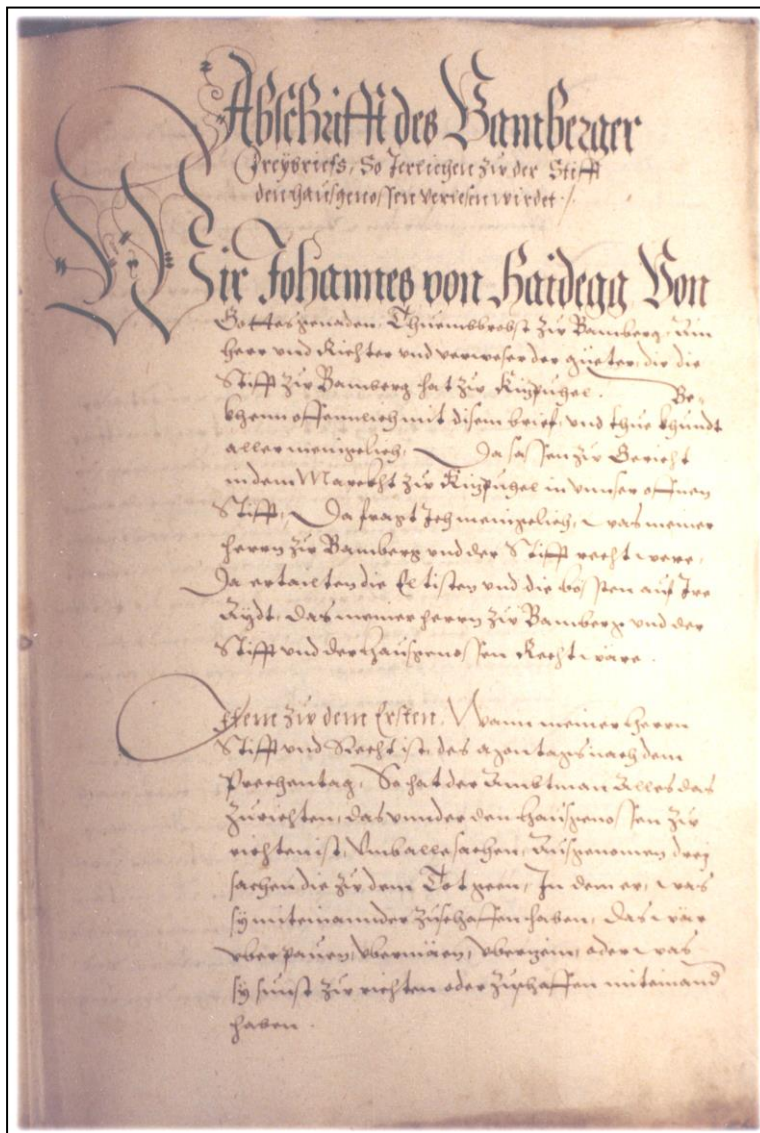 Abschrifft des Bamberger
Freybriefs, So Jerlichen zu der Stifft
den hausgenossen verlesen wirdet ./.
Wir Johannes von Haidegg Von
Gottes genaden Thuembbrobst zu Bamberg, ein
herr und Richter und verweser der güeter, die die
Stifft zu Bamberg hat zu Kizpuhel. Be-
khenn offennlich mit disem brief, und thue khundt
aller menigelich, Da sassen zu Gericht
in dem Marckht zu Kizpuhel in unnser offnen
Stifft, Da fragt Ich menigelich, was meiner
herrn zu Bamberg und der Stifft recht were,
Da ertailten die Eltisten und die bössten auf Ire
Aydt, das meiner herrn zu Bamberg und der
Stifft und der hausgenossen Recht wäre.
Item zu dem Ersten, Wann meiner herrn
Stifft und Recht ist, des agentags nach dem
Prechentag, So hat der Ambtman Alles das
zurichten, das unnder den hausgenossen zu
richten ist, Umb alle sachen, Ausgenomen drey
sachen die zu dem Tot geen, In dem er, was
sy miteinannder zuschaffen haben, das wär
uberpauen, ubermären, uberzein, oder was
sy sunst zu richten oder zuschaffen miteinand
haben.